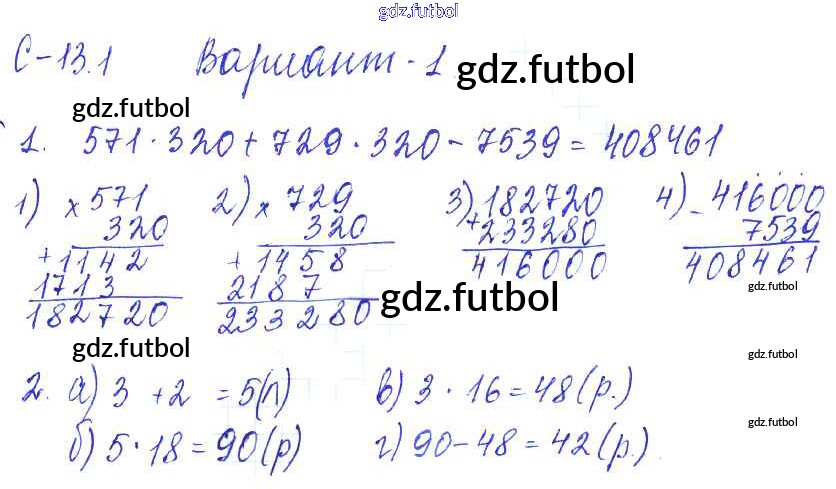 gdz.futbol
С-13.1 Вариант-1 gdz.futbol
gdz.futbol
1. 571·320+729·320-7539=408461
1) ×571 2) ×729 3) 182720 4) -416000
320 320 +233280 7539
+1142 +1458 416000 408461
1713 2187 gdz.futbol gdz.futbol
182720 233280
gdz.futbol gdz.futbol
2. а) 3 +2 =5(л) в) 3·16=48(р.)
gdz.futbol
б) 5·18=90(р) г) 90-48=42(р.)